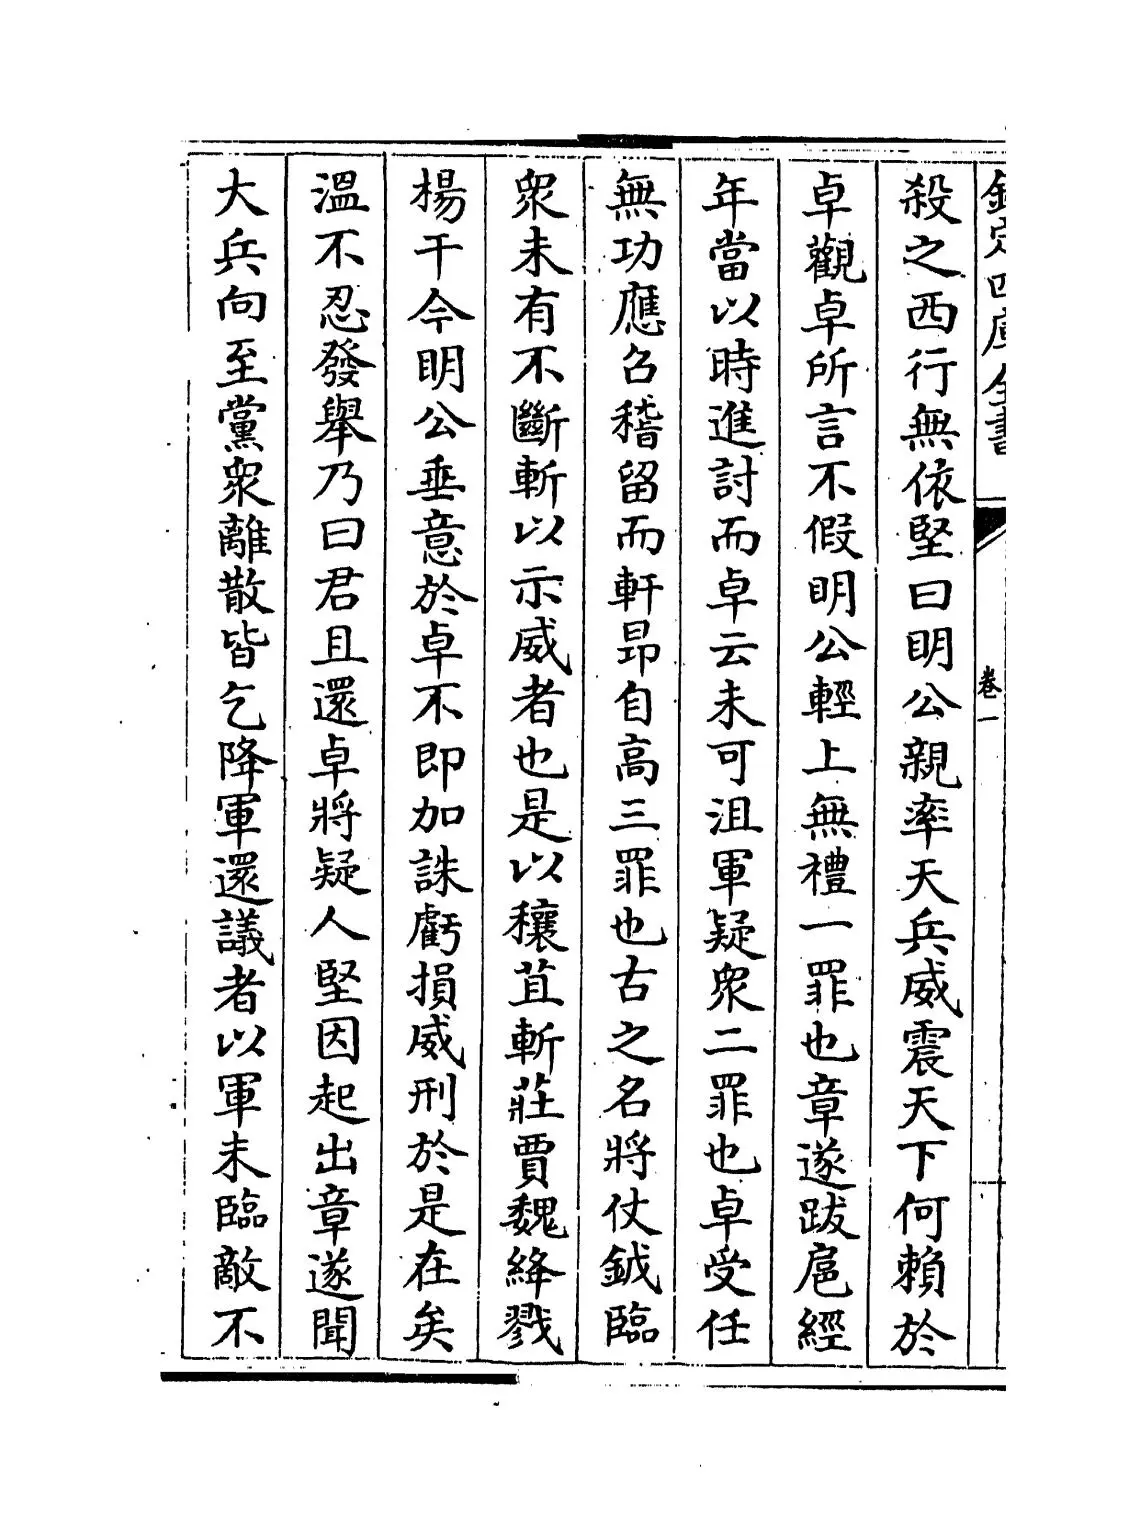 欽定四庫全書
卷一
殺之西行無依堅曰明公親率天兵威震天下何賴於
卓觀卓所言不假明公輕上無禮一罪也章遂跋扈經
年當以時進討而卓云未可沮軍疑衆二罪也卓受任
無功應召稽留而軒昂自高三罪也古之名將仗鉞臨
衆未有不斷斬以示威者也是以穰苴斬莊賈魏絳戮
楊干今明公垂意於卓不即加誅虧損威刑於是在矣
溫不忍發舉乃曰君且還卓將疑人堅因起出章遂聞
大兵向至黨衆離散皆乞降軍還議者以軍未臨敵不